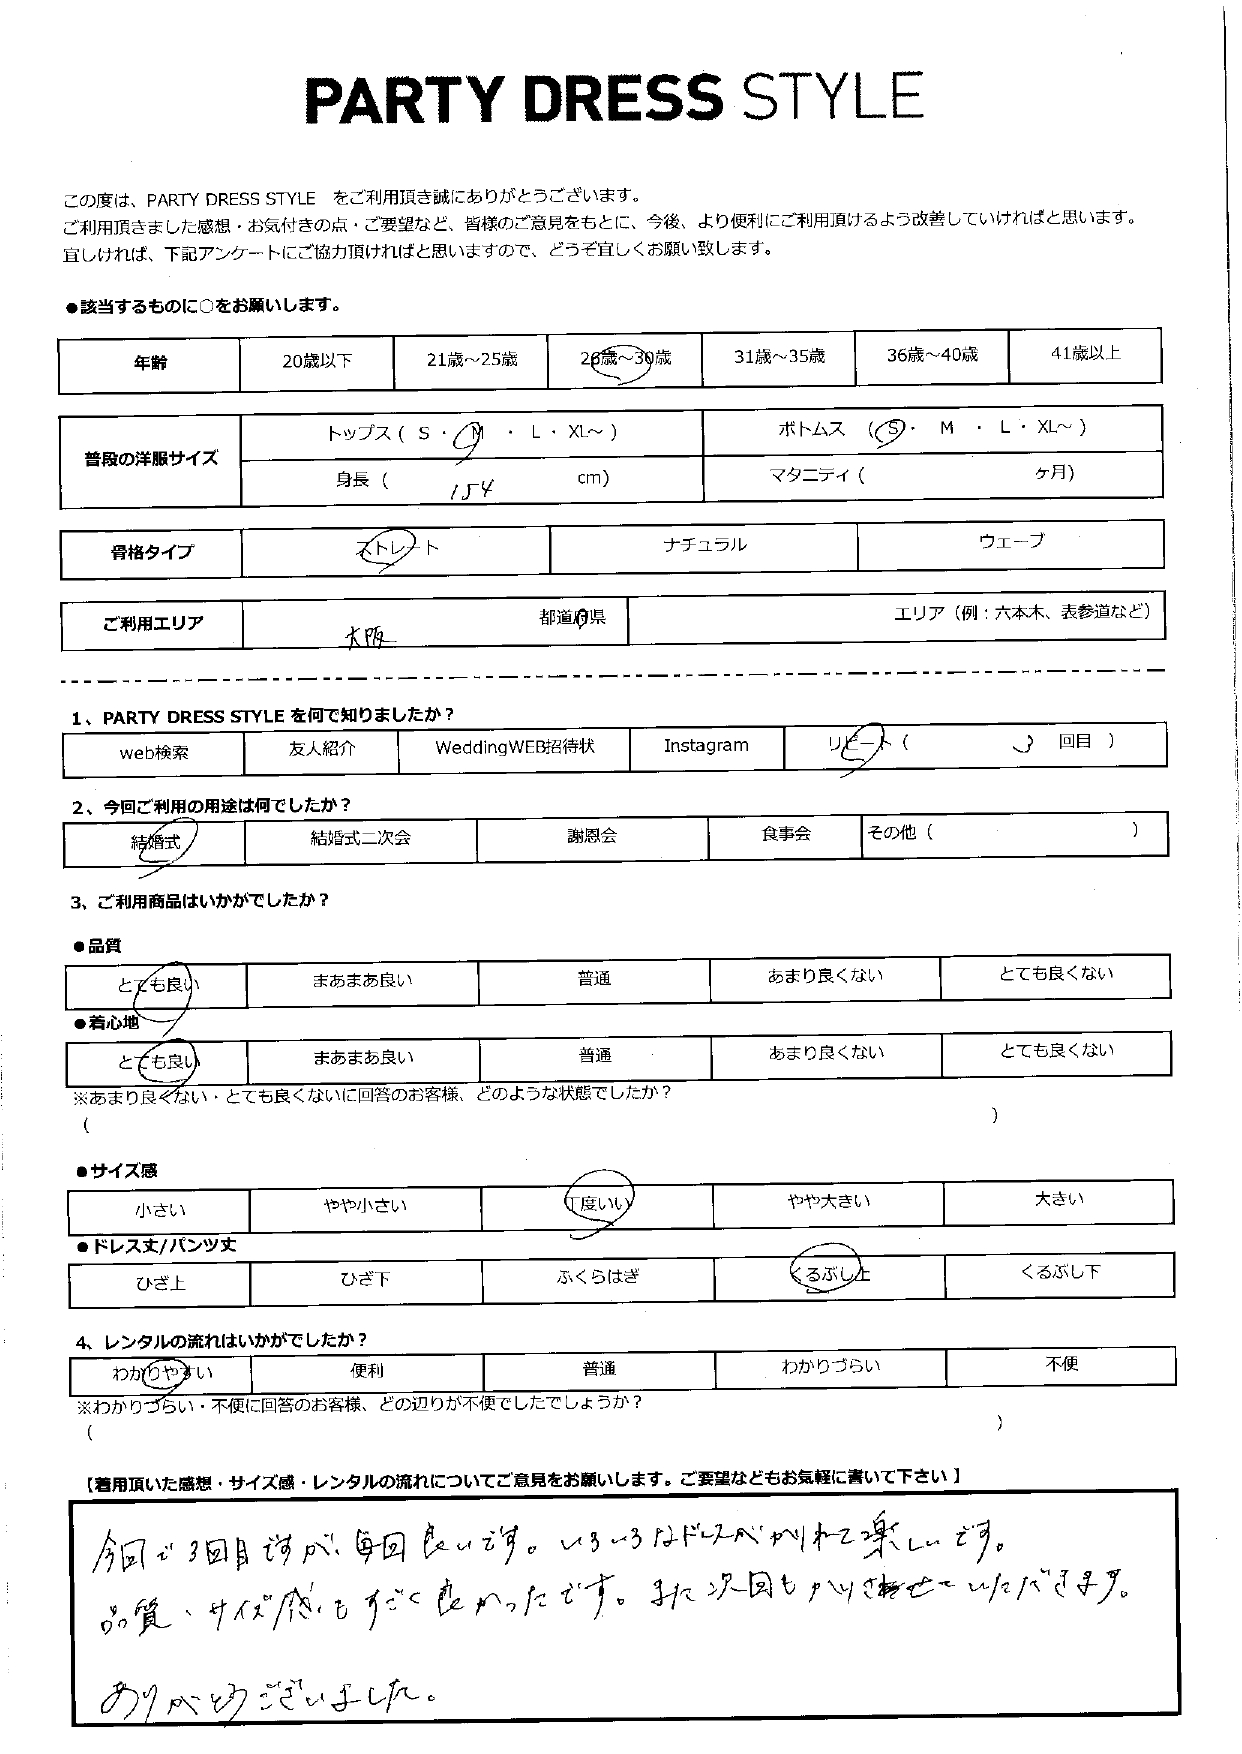 PARTY DRESS STYLE
この度は、PARTY DRESS STYLE　をご利用頂き誠にありがとうございます。
ご利用頂きました感想・お気付きの点・ご要望など、皆様のご意見をもとに、今後、より便利にご利用頂けるよう改善していければと思います。
宜しければ、下記アンケートにご協力頂ければと思いますので、どうぞ宜しくお願い致します。
●該当するものに○をお願いします。
年齢 20歳以下 21歳～25歳 26歳～30歳 31歳～35歳 36歳～40歳 41歳以上
普段の洋服サイズ トップス ( S ・ M ・ L ・ XL～ ) ボトムス ( S ・ M ・ L ・ XL～ )
身長 ( 154 cm) マタニティ ( ヶ月)
骨格タイプ ストレート ナチュラル ウェーブ
ご利用エリア 大阪 都道府県 エリア（例：六本木、表参道など）
1、PARTY DRESS STYLE を何で知りましたか？
web検索 友人紹介 WeddingWEB招待状 Instagram リピート ( 3 回目 )
2、今回ご利用の用途は何でしたか？
結婚式 結婚式二次会 謝恩会 食事会 その他 ( )
3、ご利用商品はいかがでしたか？
●品質
とても良い まあまあ良い 普通 あまり良くない とても良くない
●着心地
とても良い まあまあ良い 普通 あまり良くない とても良くない
※あまり良くない・とても良くないに回答のお客様、どのような状態でしたか？
( )
●サイズ感
小さい やや小さい 丁度いい やや大きい 大きい
●ドレス丈/パンツ丈
ひざ上 ひざ下 ふくらはぎ くるぶし上 くるぶし下
4、レンタルの流れはいかがでしたか？
わかりやすい 便利 普通 わかりづらい 不便
※わかりづらい・不便に回答のお客様、どの辺りが不便でしたでしょうか？
( )
【着用頂いた感想・サイズ感・レンタルの流れについてご意見をお願いします。ご要望などもお気軽に書いて下さい】
今回で3回目ですが、毎回良いです。いろいろなドレスがかりれて楽しいです。
品質、サイズ感もすごく良かったです。また次回もかりさせていただきます。
ありがとうございました。